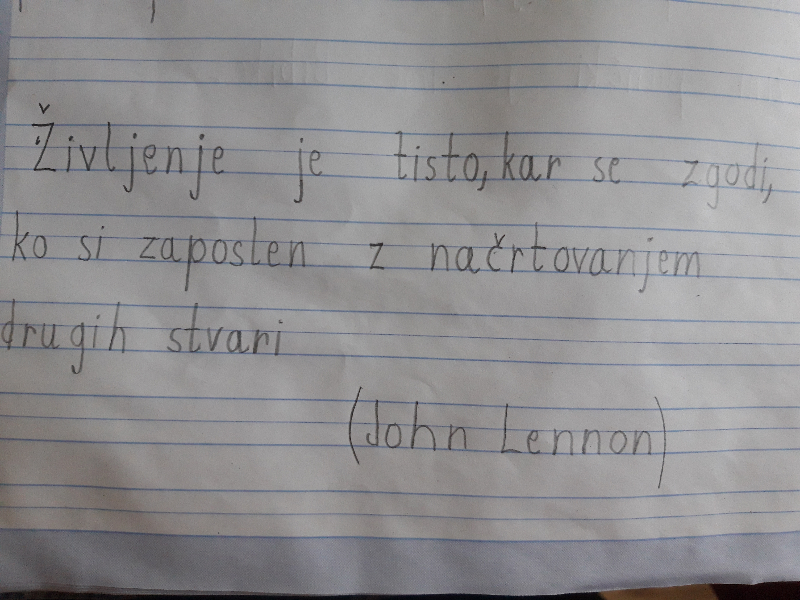 Življenje je tisto, kar se zgodi,
ko si zaposlen z načrtovanjem
drugih stvari
(John Lennon)